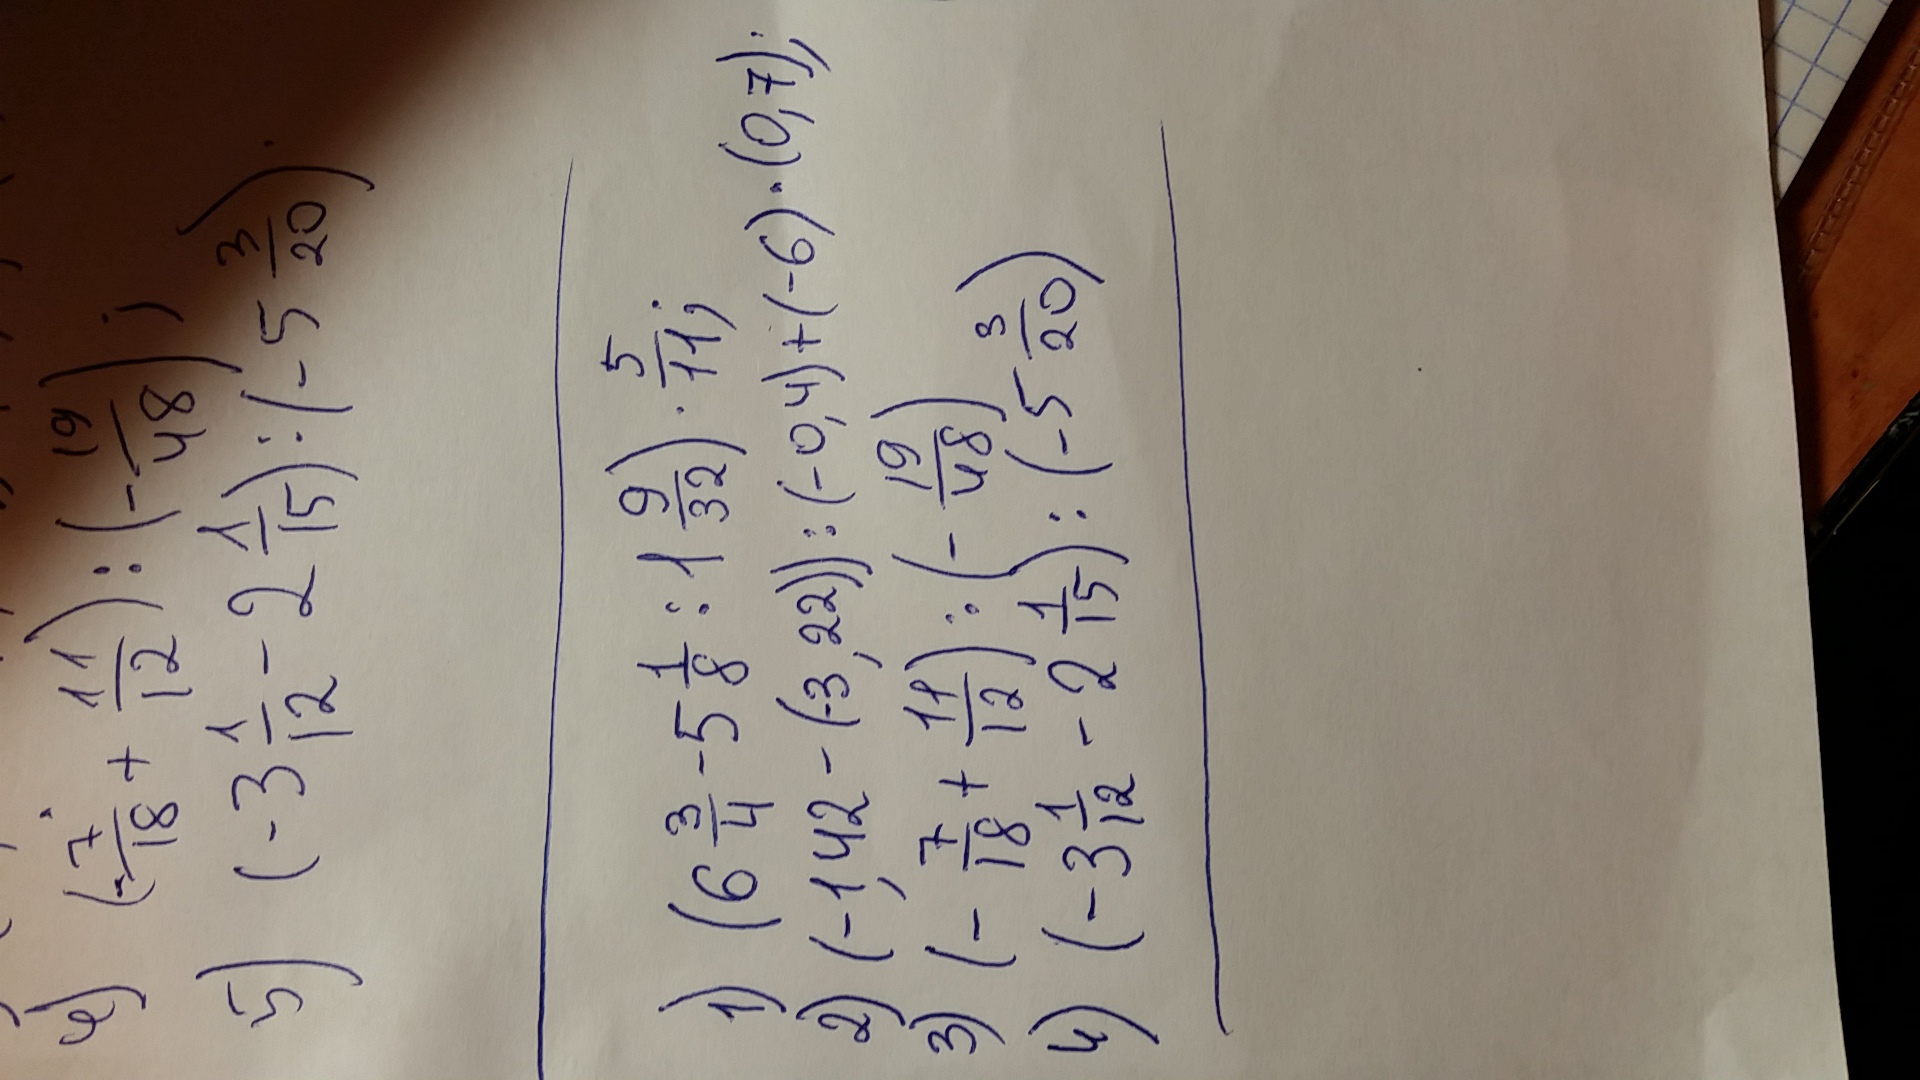 4) (-7/18 + 11/12) : (-19/48);
5) (-3 1/12 - 2 1/15) : (-5 3/20).
1) (6 3/4 - 5 1/8 : 1 9/32) · 5/11;
2) (-1,42 - (-3,22)) : (-0,4) + (-6) · (0,7);
3) (- 7/18 + 11/12) : (- 19/48)
4) (-3 1/12 - 2 1/15) : (-5 3/20)